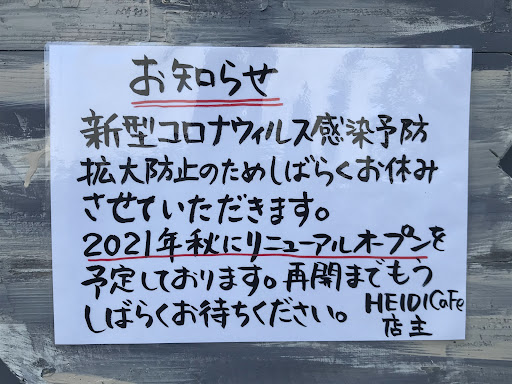 お知らせ
新型コロナウィルス感染予防
拡大防止のためしばらくお休み
させていただきます。
2021年秋にリニューアルオープンを
予定しております。再開までもう
しばらくお待ちください。 HEIDI CaFe
店主